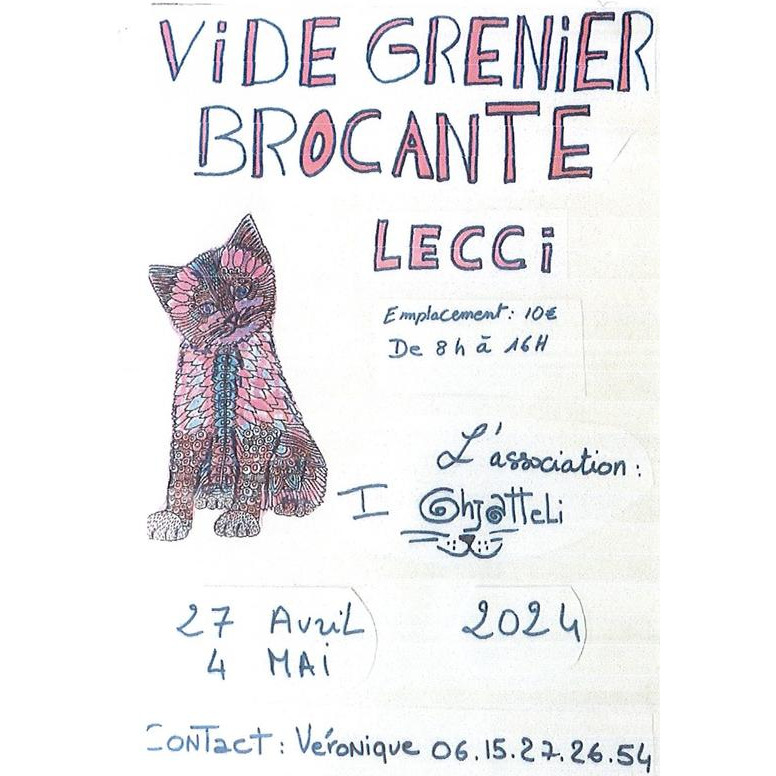 ViDE GRENiER
BROCANTE
LECCi
Emplacement: 10€
De 8h à 16H
L'association:
I Ghjatteli
27 AvriL 2024
4 MAi
CONTact: Véronique 06.15.27.26.54